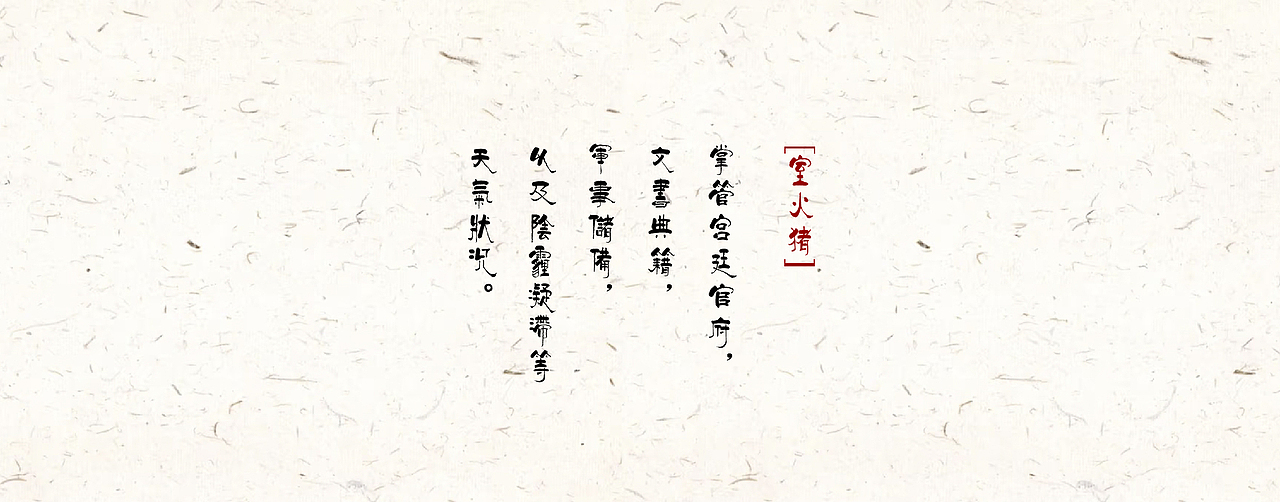 [室火猪]
掌管宫廷官府，
文書典籍，
軍事儲備，
以及陰霾凝滯等
天氣狀況。